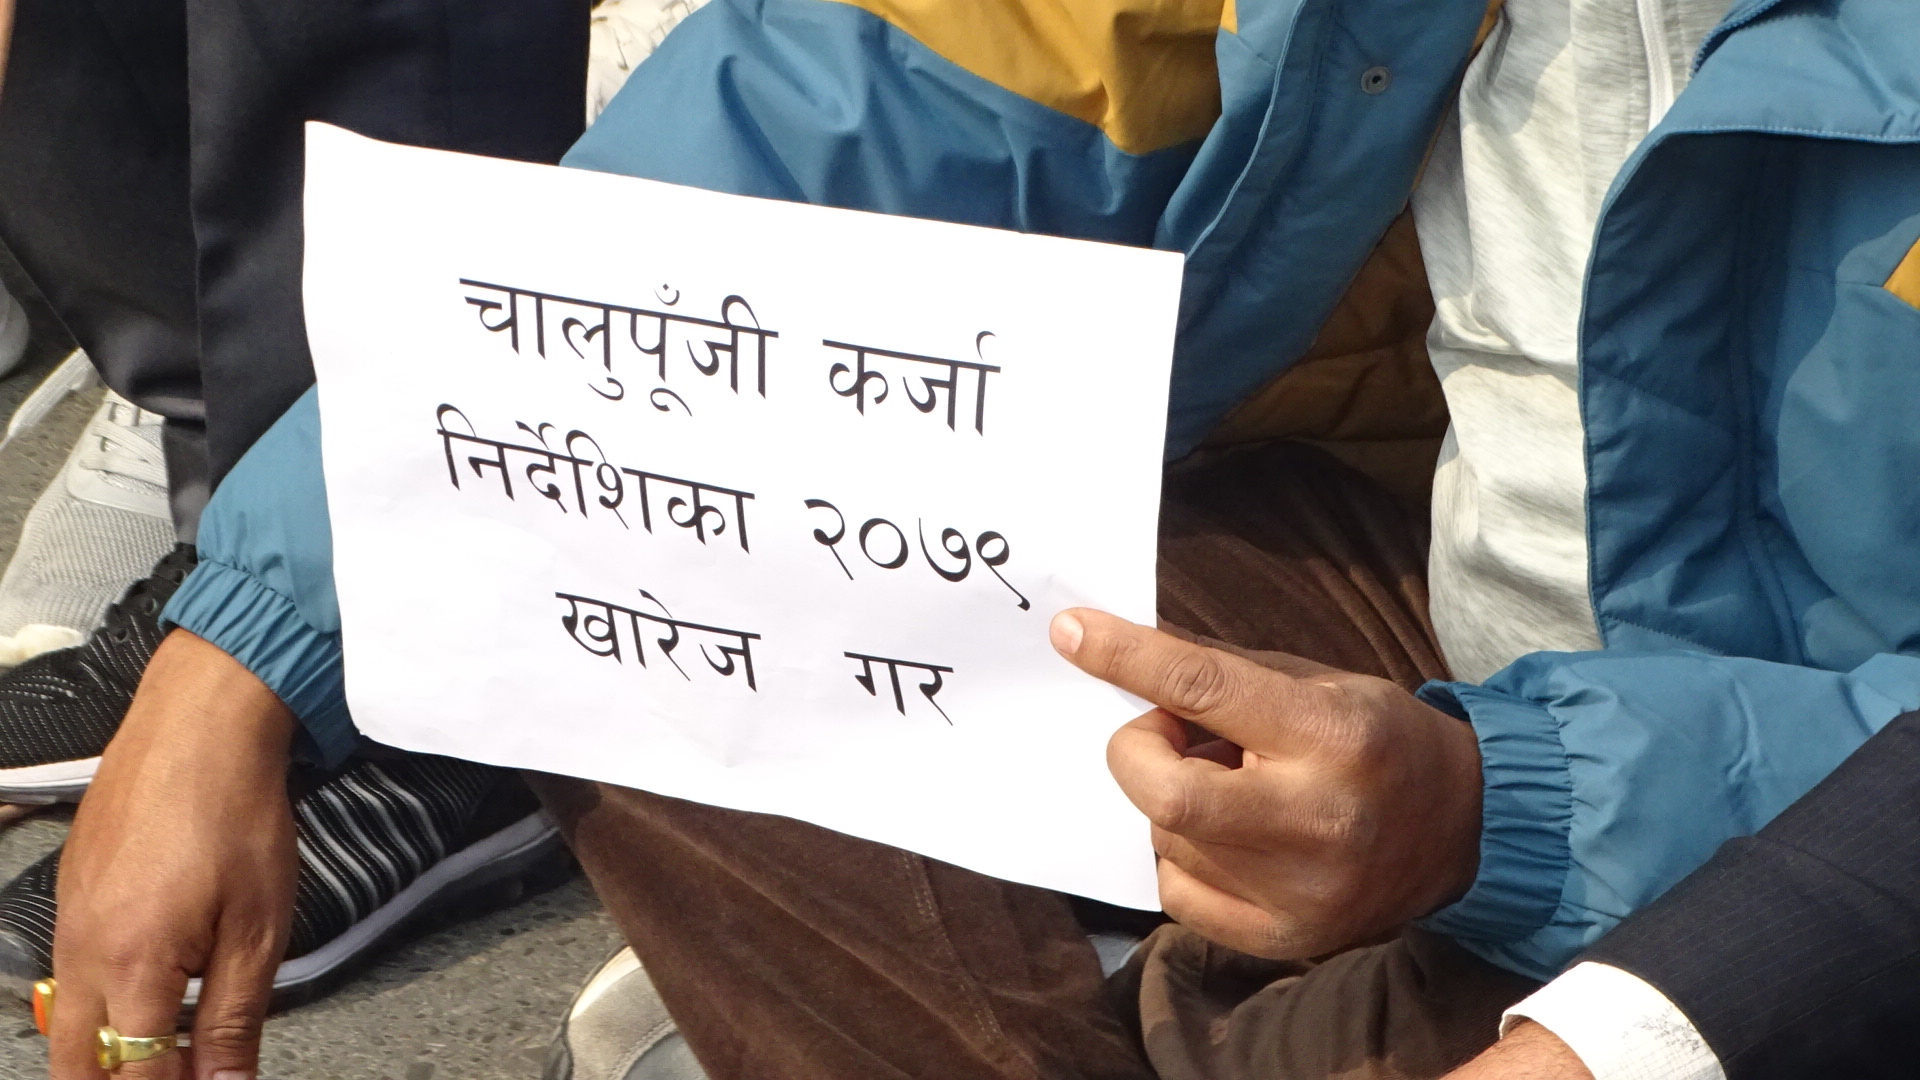 चालुपूँजी कर्जा
निर्देशिका २०७९
खारेज गर